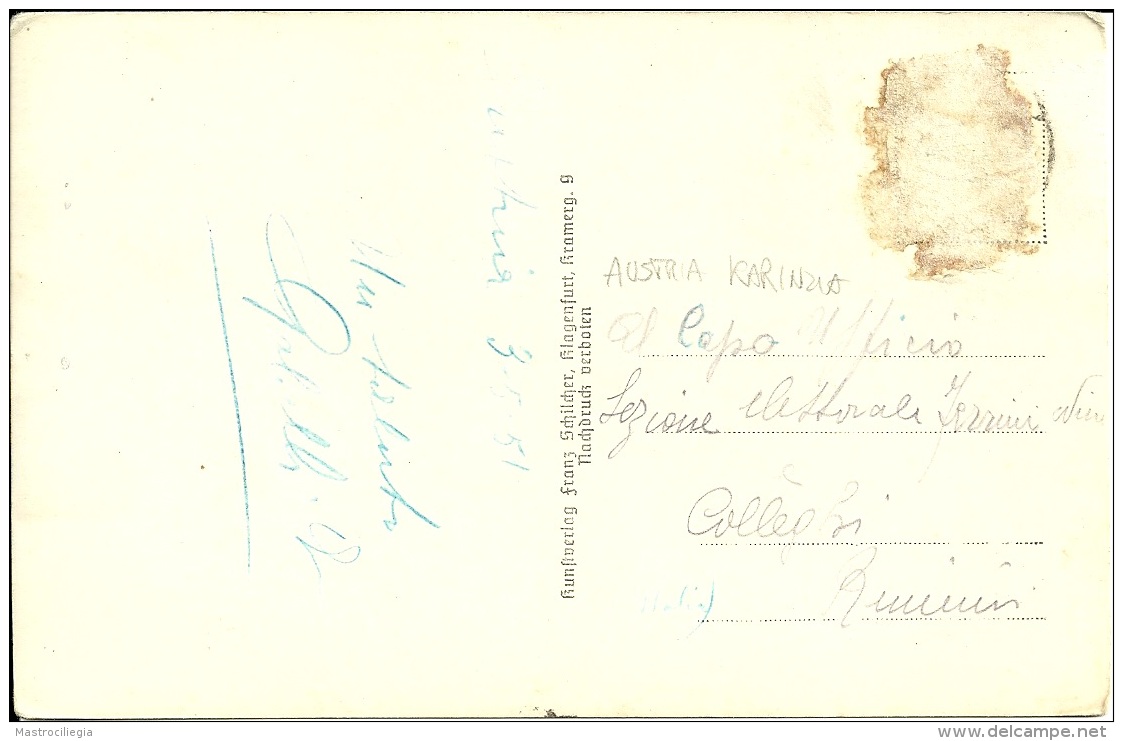 3-5-51
Un saluto
Kunstverlag Franz Schilcher, Klagenfurt, Kramerg. 9
Nachdruck verboten
AUSTRIA KARINZIA
Al Capo Ufficio
Sezione elettorale
Colleghi
Rimini
(Italia)
Mastrociliegia
www.delcampe.net